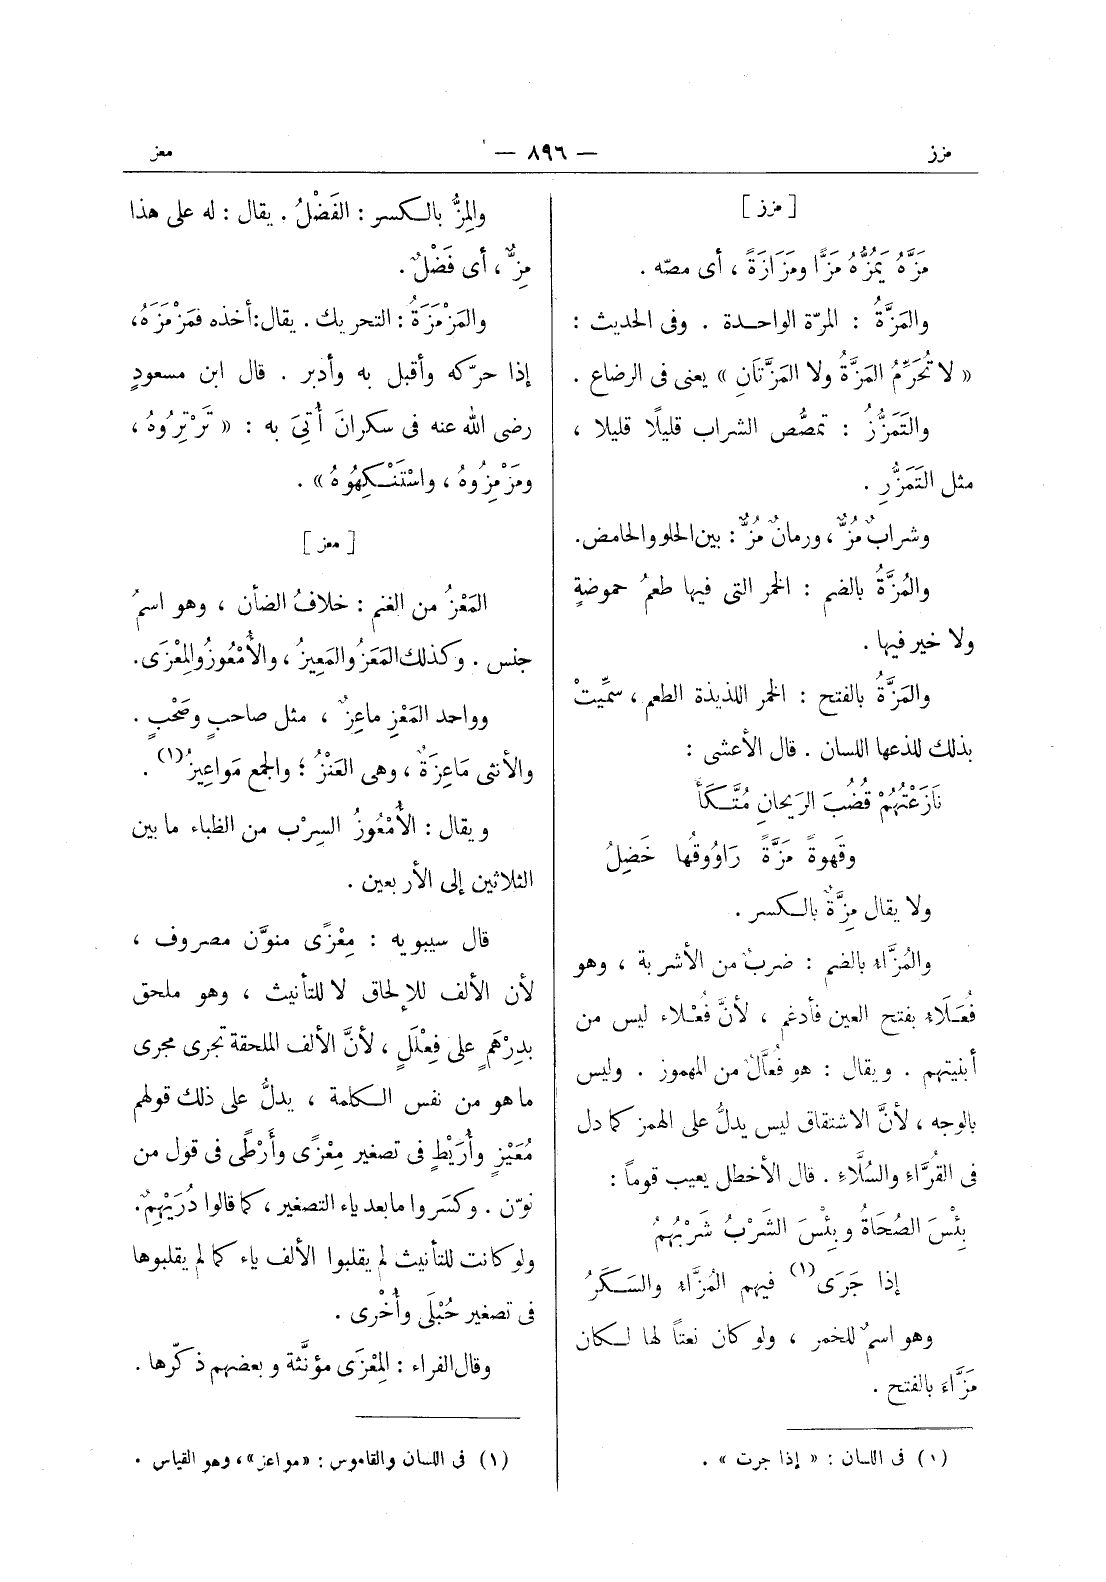 مزز
— ٨٩٦ —
معز
[ مزز ]
مَزَّهُ يَمُزُّهُ مَزًّا ومَزَازَةً ، أى مصّه .
والمَزَّةُ : المرّة الواحـدة . وفى الحديث :
« لا تُحَرِّمُ المَزَّةُ ولا المَزَّتَانِ » يعنى فى الرضاع .
والتَمَزُّزُ : تمصُّص الشراب قليلًا قليلا ،
مثل التَمَزُّرِ .
وشرابٌ مُزٌّ ، ورمانٌ مُزٌّ : بين الحلو والحامض.
والمُزَّةُ بالضم : الخمر التى فيها طعمُ حموضةٍ
ولا خير فيها .
والمَزَّةُ بالفتح : الخمر اللذيذة الطعم ، سمِّيتْ
بذلك للذعها اللسان . قال الأعشى :
نَازَعْتُهُمْ قُضُبَ الرَيحانِ مُتَّـكَأً
وقَهوةً مَزَّةً رَاوُوقُها خَضِلُ
ولا يقال مِزَّةٌ بالـكسر .
والمُزَّاءِ بالضم : ضربٌ من الأشربة ، وهو
فُعَـلَاءِ بفتح العين فأدغم ، لأنَّ فُعْـلاء ليس من
أبنيتهم . ويقال : هو فُعَّالٌ من المهموز . وليس
بالوجه ، لأنَّ الاشتقاق ليس يدلُّ على الهمز كما دل
فى القُرَّاءِ والسُلَّاءِ . قال الأخطل يعيب قوماً :
بِئْسَ الصُحَاةُ وبِئْسَ الشَرْبُ شَرْبُهُمُ
إذا جَرَى(١) فيهم المُزَّاءِ والسَـكَرُ
وهو اسمٌ للخمر ، ولو كان نعتاً لها لـكان
مَزَّاءَ بالفتح .
(١) فى اللسان : « إذا جرت » .
والمِزُّ بالـكسر : الفَضْلُ . يقال : له على هذا
مِزٌّ ، أى فَضْلٌ .
والمَزْمَزَةُ : التحريك . يقال: أخذه فمَزْمَزَهُ،
إذا حرّكه وأقبل به وأدبر . قال ابن مسعودٍ
رضى الله عنه فى سكرانَ أُتِىَ به : « تَرْتِرُوهُ ،
ومَزْمِزُوهُ ، واسْتَنْـكِهُوهُ » .
[ معز ]
المَعْزُ من الغنم : خلافُ الضأن ، وهو اسمُ
جنس . وكذلك المَعَزُ والمَعِيزُ ، والأُمْعُوزُ والمِعْزَى.
وواحد المَعْزِ ماعِزٌ ، مثل صاحبٍ وصَحْبٍ .
والأنثى مَاعِزَةٌ ، وهى العَنْزُ ؛ والجمع مَواعِيزُ(١) .
ويقال : الأُمْعُوزُ السِرْب من الظباء ما بين
الثلاثين إلى الأربعين .
قال سيبويه : مِعْزًى منوَّن مصروف ،
لأن الألف للإلحاق لا للتأنيث ، وهو ملحق
بدِرْهَمٍ على فِعْلَلٍ ، لأنَّ الألف الملحقة تجرى مجرى
ما هو من نفس الـكلمة ، يدلُّ على ذلك قولهم
مُعَيْزٍ وأُرَيْطٍ فى تصغير مِعْزًى وأَرْطًى فى قول من
نوّن . وكسَروا ما بعد ياء التصغير ، كما قالوا دُرَيْهِمٌ.
ولو كانت للتأنيث لم يقلبوا الألف ياء كما لم يقلبوها
فى تصغير حُبْلَى وأُخْرى .
وقال الفراء : المِعْزَى مؤنَّثة وبعضهم ذكّرها .
(١) فى اللسان والقاموس : «مواعز»، وهو القياس .